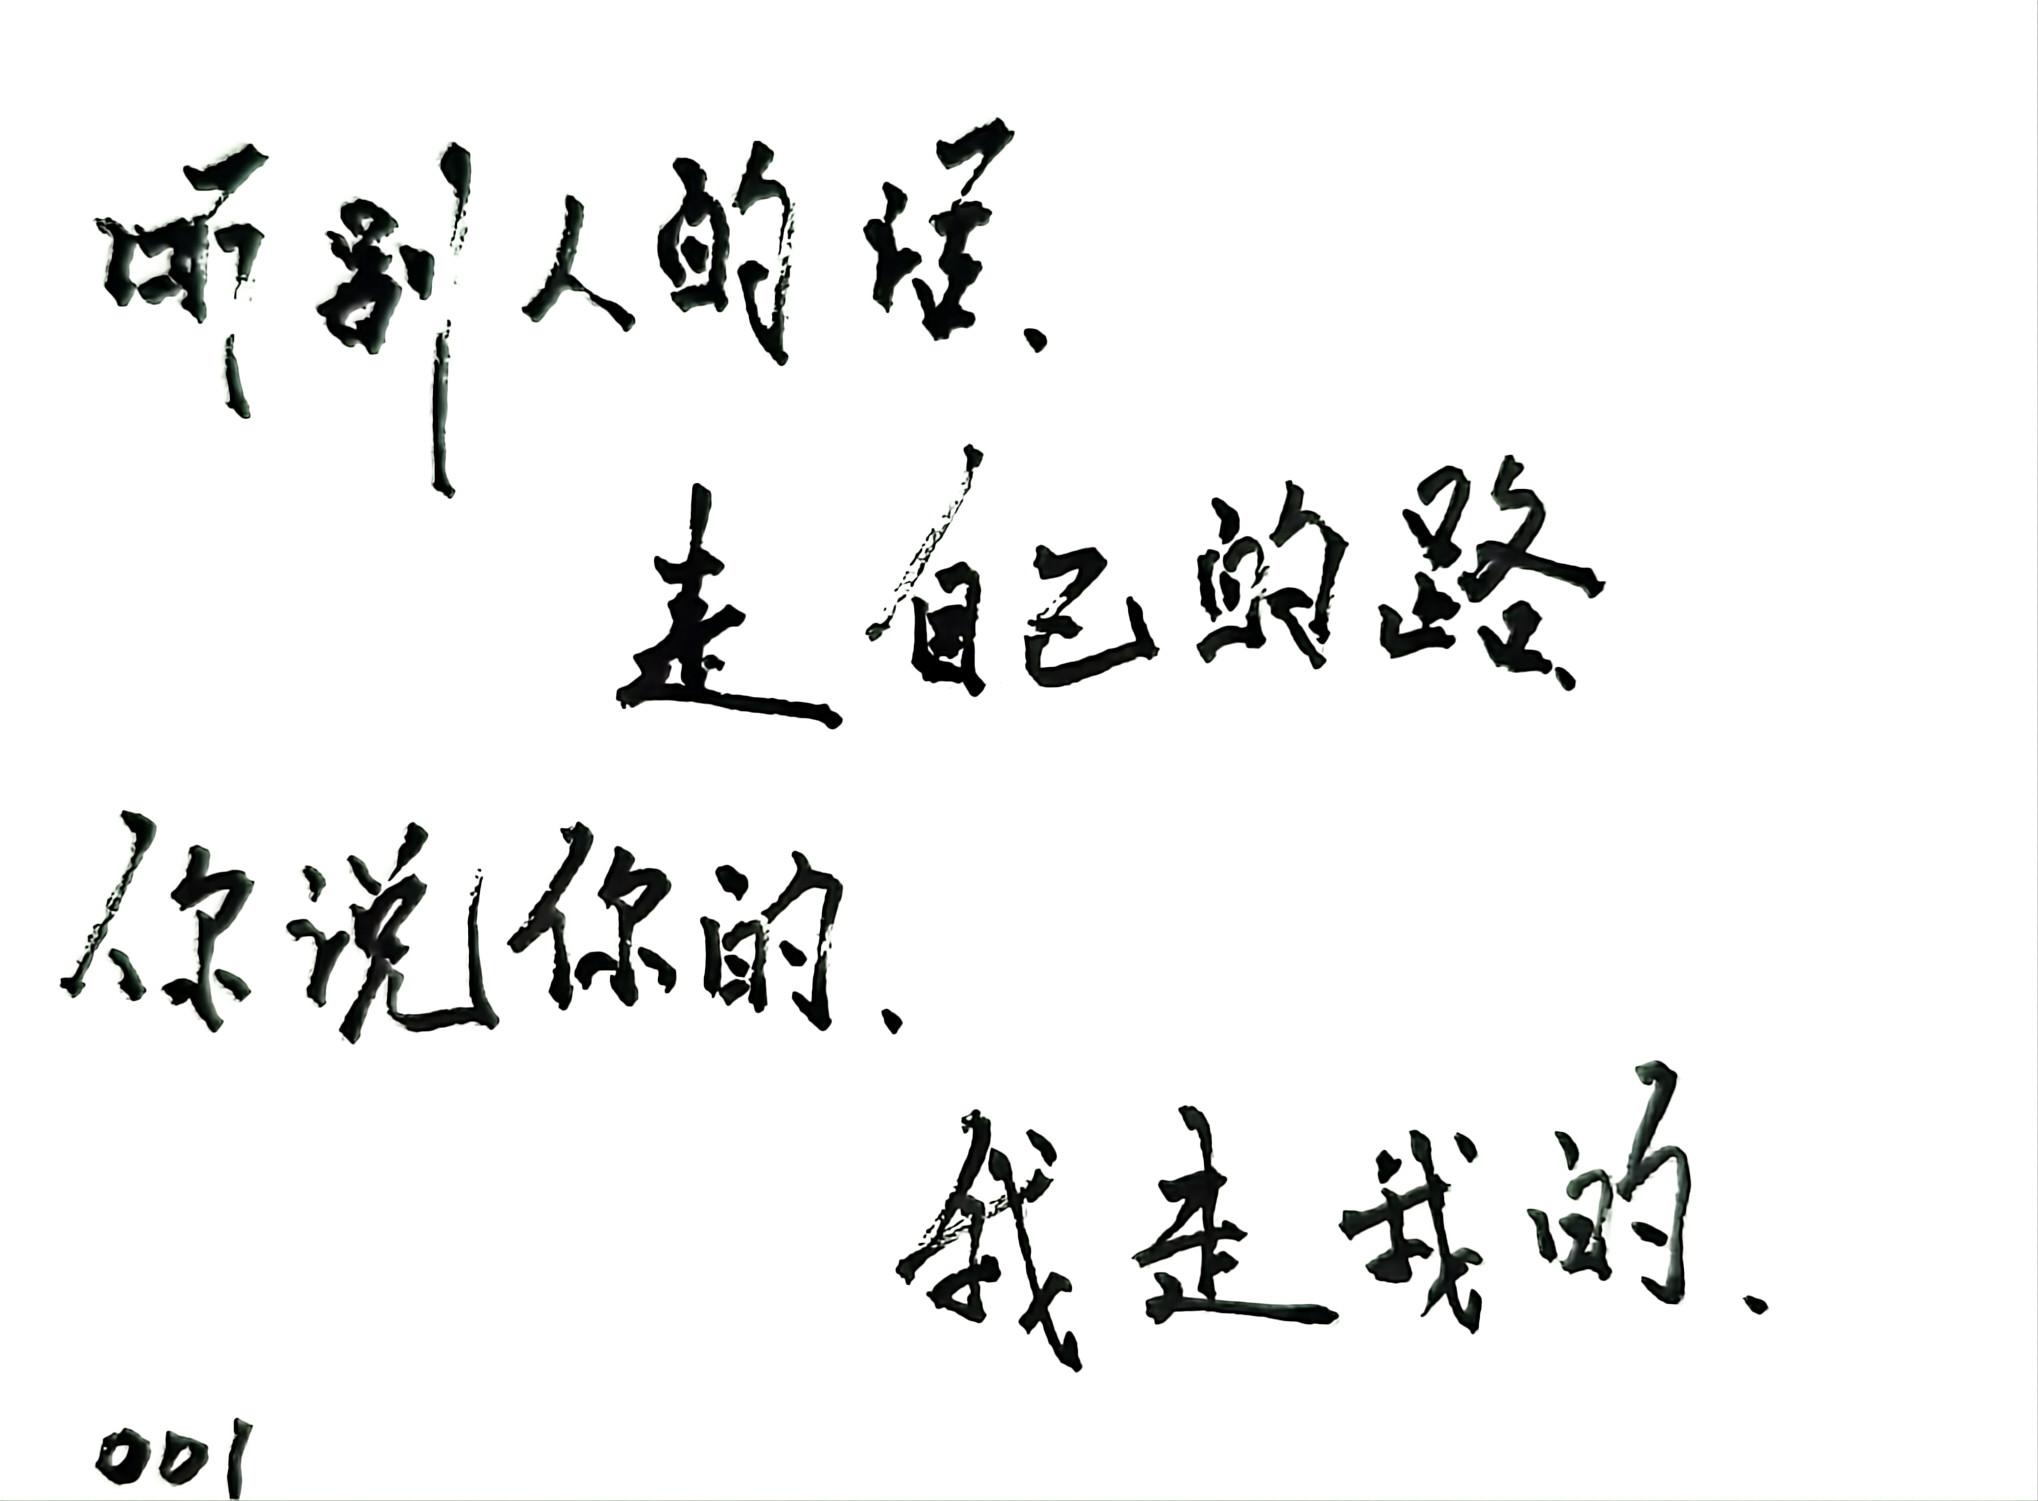 听别人的话、
走自己的路、
你说你的、
我走我的、
001